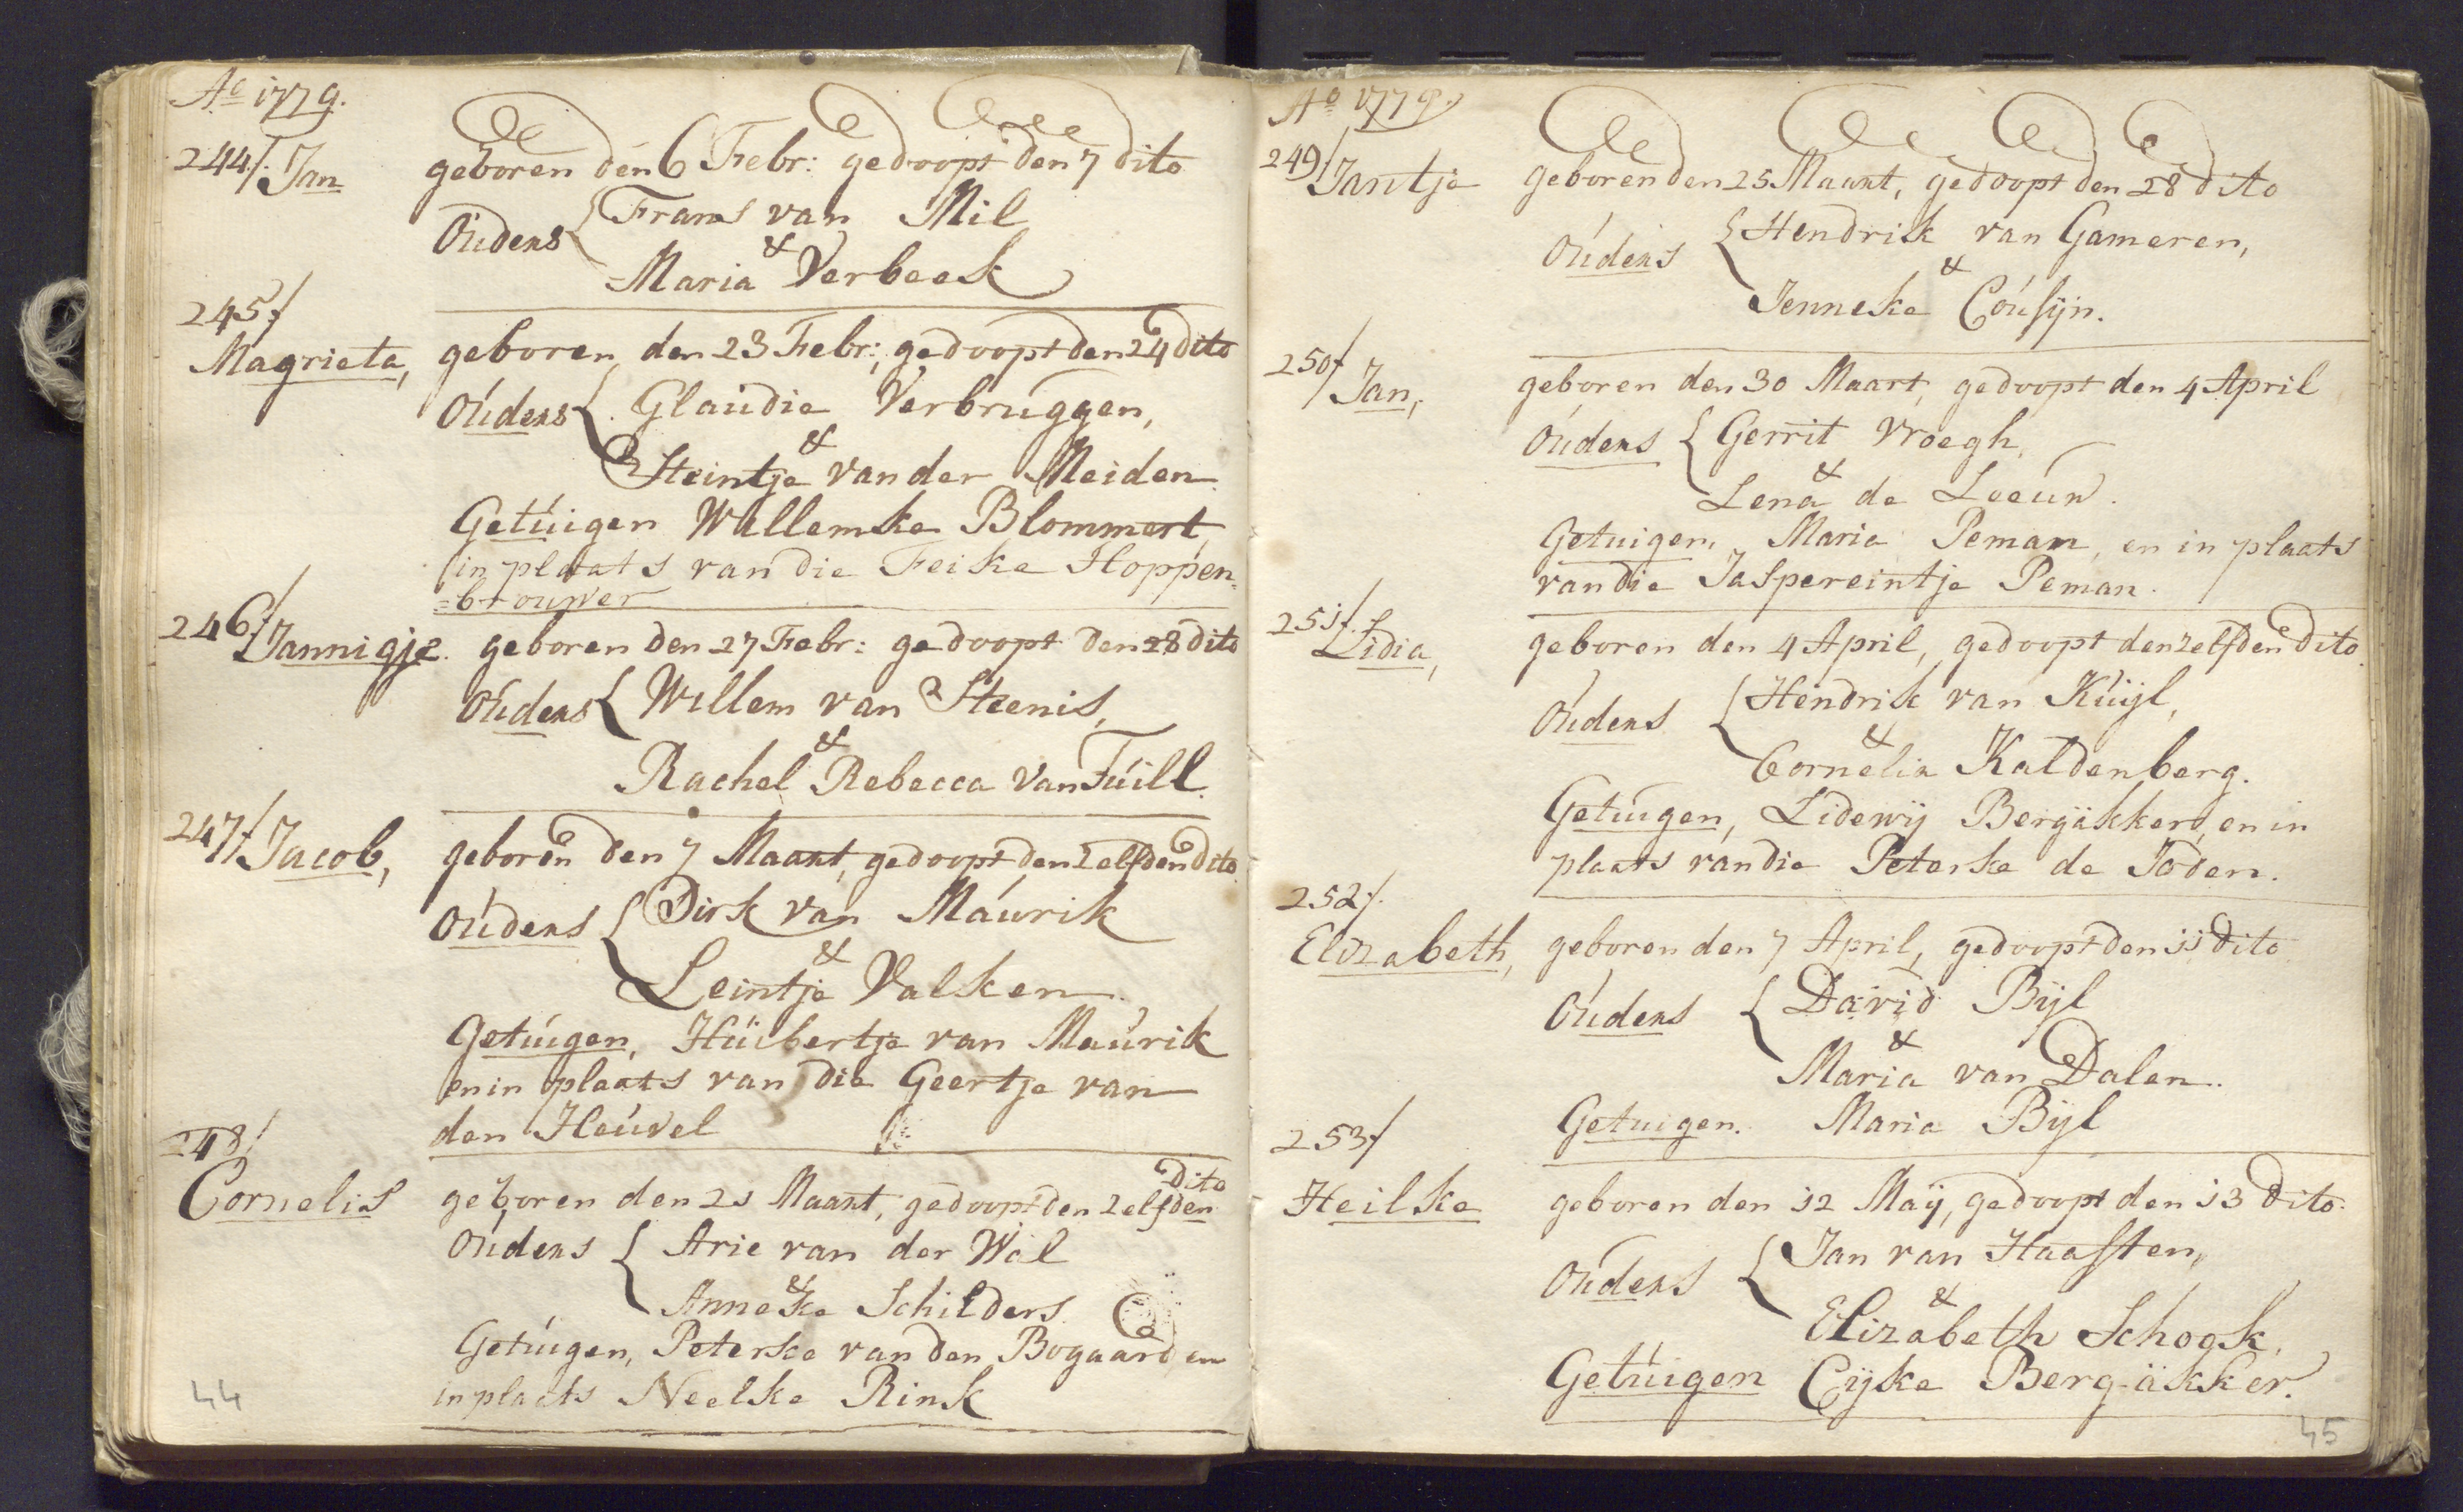 Ao 1779.
244/. Jan geboren den 6 Febr: gedoopt den 7 dito
Ouders { Frans van Mil
&
Maria Verbeek
245/
Magrieta, geboren den 23 Febr:, gedoopt den 24 dito
Ouders { Glaudie Verbruggen,
&
Steintje van der Meiden
Getuigen Willemke Blommert
in plaats van die Feike Hoppen=
=brouwer
246/ Jannigje. geboren den 27 Febr: gedoopt den 28 dito
Ouders { Willem van Steenis,
&
Rachel Rebecca van Tuill.
247/ Jacob, geboren den 7 Maart, gedoopt den zelfden dito
Ouders { Dirk van Maurik
&
Leintje Valken
Getuigen, Huibertje van Maurik
en in plaats van die Geertje van
den Heuvel
248/
Cornelis geboren den 21 Maart, gedoopt den zelfden dito
Ouders { Arie van der Wal
&
Anneke Schilders
Getuigen, Peterke van den Bogaard en
in plaats Neelke Rink
44
Ao 1779.
249/ Jantje geboren den 25 Maart, gedoopt den 28 dito
Ouders { Hendrik van Gameren,
&
Jenneke Cousijn.
250/ Jan, geboren den 30 Maart, gedoopt den 4 April
Ouders { Gerrit Vroegh,
&
Lena de Loeuw.
Getuigen, Maria Peman, en in plaats
van die Jaspereintje Peman.
251/.
Lidia, geboren den 4 April, gedoopt den zelfden dito
Ouders { Hendrik van Kuijl,
&
Cornelia Kaldenberg.
Getuigen, Lidewij Bergakker, en in
plaats van die Peterke de Joden.
252/.
Elizabeth, geboren den 7 April, gedoopt den 11 dito
Ouders { David Bijl
&
Maria van Dalen.
Getuigen. Maria Bijl
253/
Heilke geboren den 12 Maij, gedoopt den 13 dito.
Ouders { Jan van Haaften,
&
Elizabeth Schook,
Getuigen Eijke Berg-akker.
45